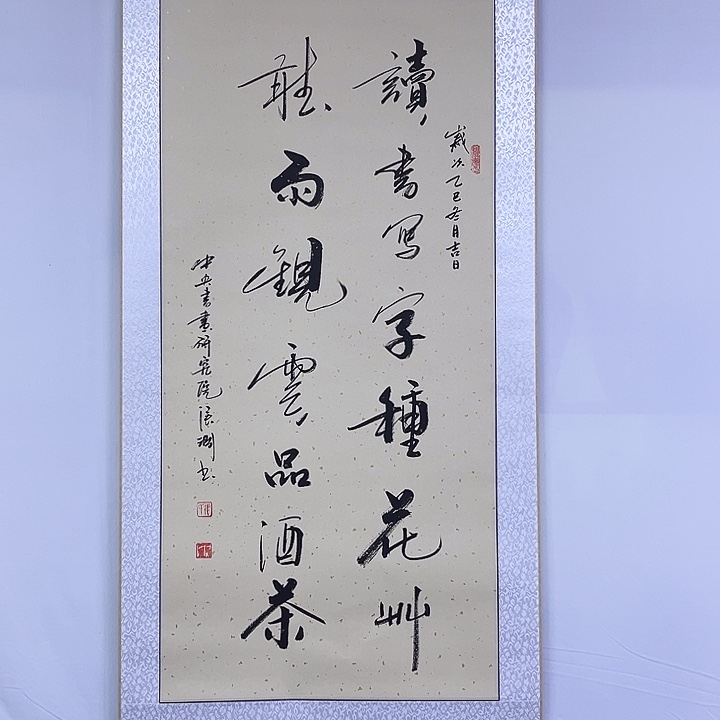 歲次乙巳冬月吉日
讀書写字種花艸
聽雨觀雲品酒茶
中央書畫研究院 書